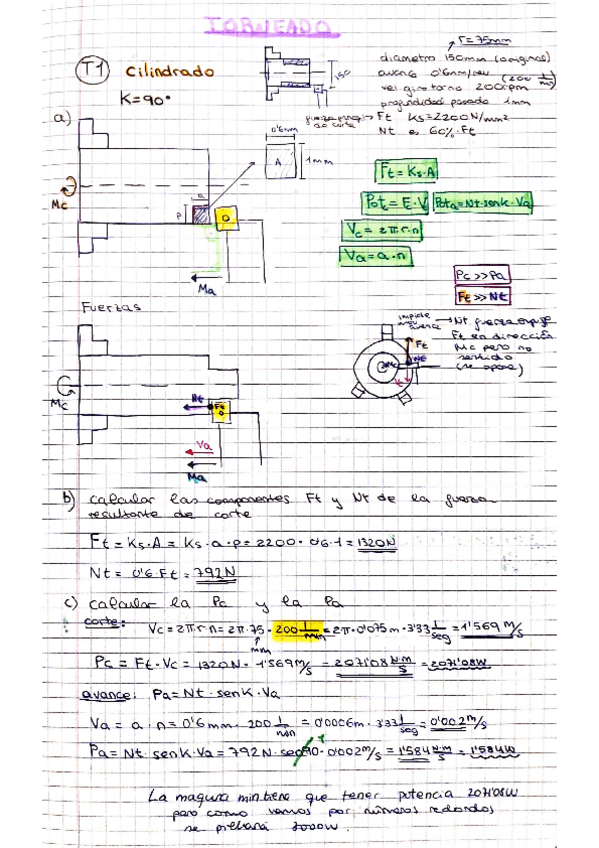 TORNEADO
r=75mm
T1 Cilindrado
K=90°
150
diametro 150mm (original)
avance 0'6mm/rev
(200 1/min)
vel. giro torno 200rpm
profundidad pasada 1mm
Ft Ks=2200N/mm²
Nt es 60%·Ft
a)
0'6mm
A
1mm
Ft = Ks·A
Pot = E·V
Pota=Nt·senK·Va
Vc = 2πr·n
Va = a·n
Mc
P
Ma
Pc >> Pa
Ft >> Nt
Fuerzas
impide
avance
Nt fuerza empuje
Ft en dirección
Mc pero no
sentido
(se opone)
Ft
Nt
Mc
Mc
Nt
Ft
Va
Ma
b) Calcular las componentes Ft y Nt de la fuerza
resultante de corte
Ft = Ks·A = Ks·a·p = 2200 · 0'6·1 = 1320N
Nt = 0'6·Ft = 792N
c) Calcular la Pc y la Pa
corte: Vc = 2πr·n = 2π·75 · 200 1/min = 2π·0'075m·3'33 1/seg = 1'569 m/s
mm
Pc = Ft·Vc = 1320N · 1'569 m/s = 2071'08 N·m/s = 2071'08W
avance: Pa = Nt·senK·Va
Va = a·n = 0'6mm·200 1/min = 0'0006m · 3'33 1/seg = 0'002 m/s
Pa = Nt·senK·Va = 792N·sen90·0'002 m/s = 1'584 N·m/s = 1'584W
1
La maquina min tiene que tener potencia 2071'08W
pero como vamos por números redondos
se pillará 3000W.